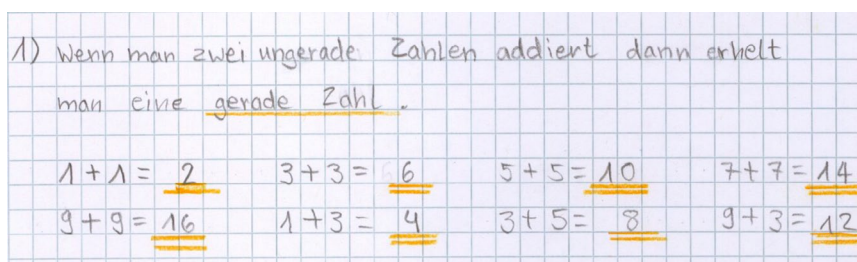 1) Wenn man zwei ungerade Zahlen addiert dann erhelt
man eine gerade Zahl.
1+1= 2 3+3= 6 5+5= 10 7+7= 14
9+9= 16 1+3= 4 3+5= 8 9+3= 12